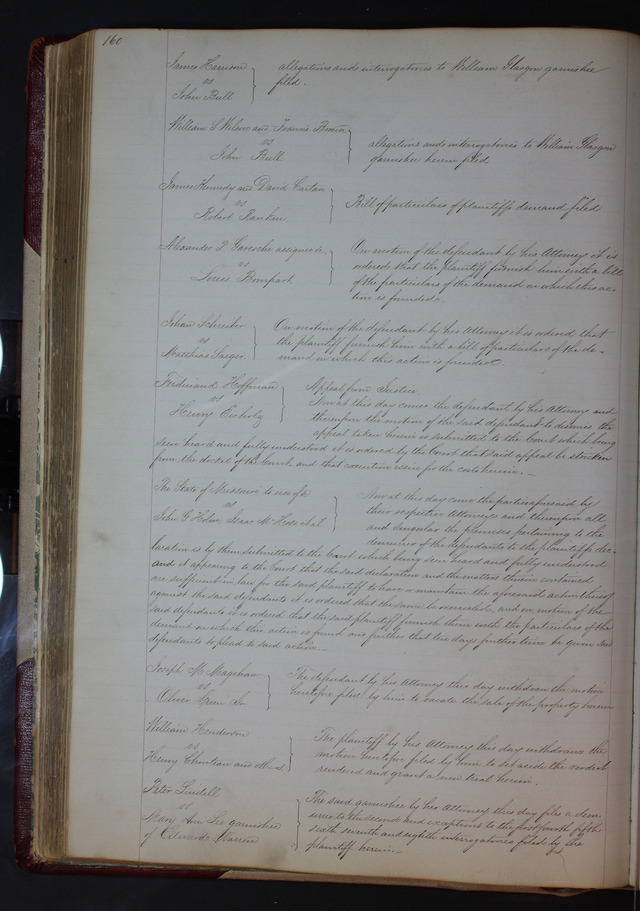 160
James Harrison
vs
John Bull
allegations and interrogatories to William Glasgow garnishee
filed.
William S Nelson and Francis
vs
John Bull
allegations and interrogatories to William Glasgow
garnishee herein filed
James Kennedy and David Cartan
vs
Robert Rankin
Bill of particulars of plaintiffs demand filed
Alexander P Garesche assignee &c
vs
Louis Bompart
On motion of the defendant by his Attorney it is
ordered that the plaintiff furnish him with a bill
of the particulars of the demand on which this ac-
tion is founded.
John Schreiber
vs
Matthias
On motion of the defendant by his Attorney it is ordered that
the plaintiff furnish him with a bill of particulars of the de-
mand on which this action is founded.
Ferdinand Hoffman
vs
Henry Eicholtz
Appeal from Justice
Now at this day comes the defendant by his Attorney and
thereupon the motion of the said defendant to dismiss the
appeal taken herein is submitted to the Court which being
seen heard and fully understood it is ordered by the Court that said appeal be stricken
from the docket of the Court, and that execution issue for the costs herein.
The State of Missouri to use of
vs
John G Isaac M et al
Now at this day come the parties aforesaid by
their respective Attorneys and thereupon all
and singular the premises pertaining to the
demurrer of the defendants to the plaintiffs dec-
laration is by them submitted to the Court which being seen heard and fully understood
and it appearing to the Court that the said declaration and the matters therein contained
are sufficient in law for the said plaintiff to have & maintain the aforesaid action thereof
against the said defendants it is ordered that the same be overruled, and on motion of the
said defendants it is ordered that the said plaintiff furnish them with the particulars of the
demand on which this action is found and further that ten days further time be given said
defendants to plead to said action.
Joseph M Magehan
vs
Oliver Green Jr
The defendant by his Attorney this day withdraws the motion
heretofore filed by him to vacate the sale of the property herein
William Henderson
vs
Henry Chouteau and
The plaintiff by his Attorney this day withdraws the
motion heretofore filed by him to set aside the verdict
rendered and grant a new trial herein.
Peter Lindell
vs
Mary Ann Lee garnishee
of Edward
The said garnishee by his Attorney this day files a dem-
urrer to the second and exceptions to the first fourth fifth
sixth seventh and eighth interrogatories filed by the
plaintiff herein.